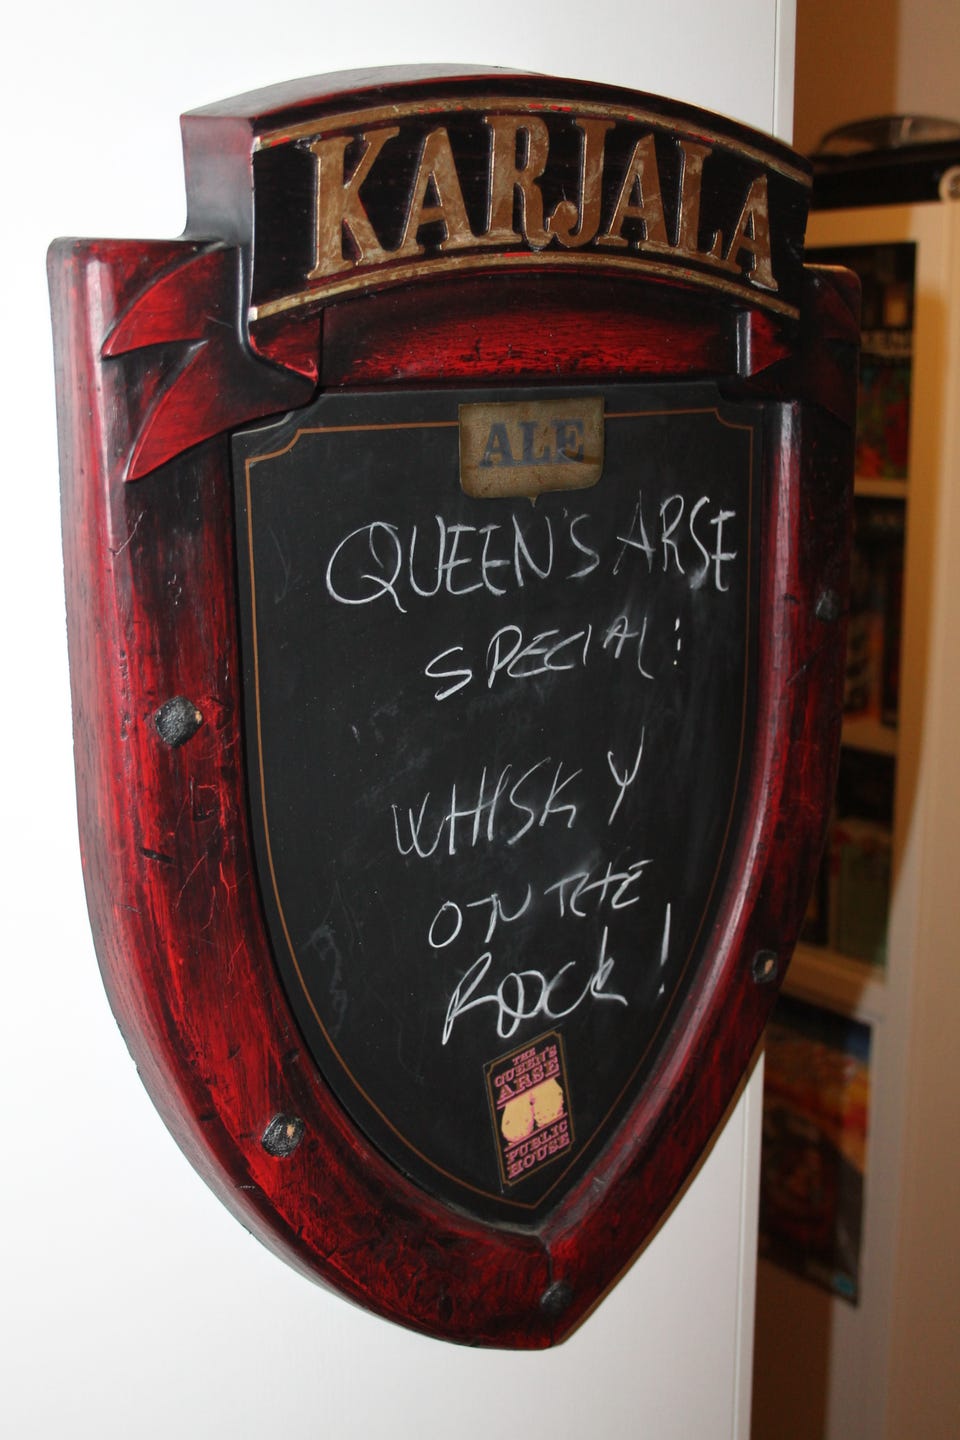 KARJALA
ALE
QUEEN'S ARSE
SPECIAL:
WHISKY
ON THE
ROCK!
THE
QUEEN'S
ARSE
PUBLIC
HOUSE